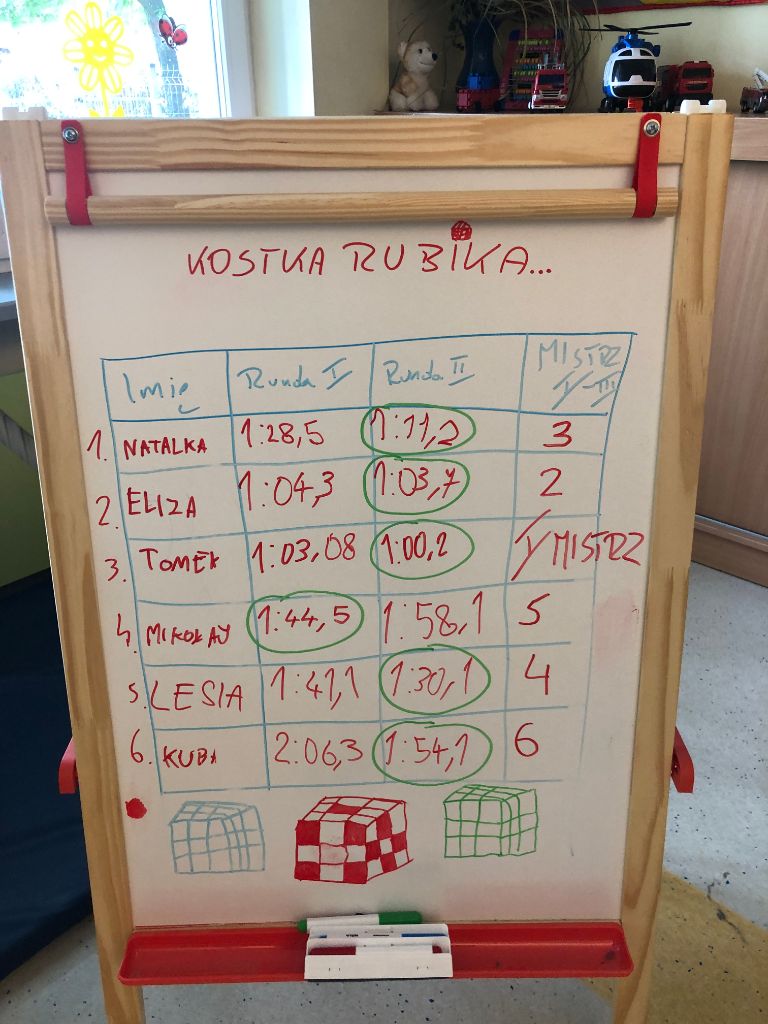 KOSTKA RUBIKA...
Imię Runda I Runda II MISTRZ I-III
1. NATALKA 1:28,5 1:11,2 3
2. ELIZA 1:04,3 1:03,7 2
3. TOMEK 1:03,08 1:00,2 I MISTRZ
4. MIKOŁAY 1:44,5 1:58,1 5
5. LESIA 1:41,1 1:30,1 4
6. KUBA 2:06,3 1:54,1 6